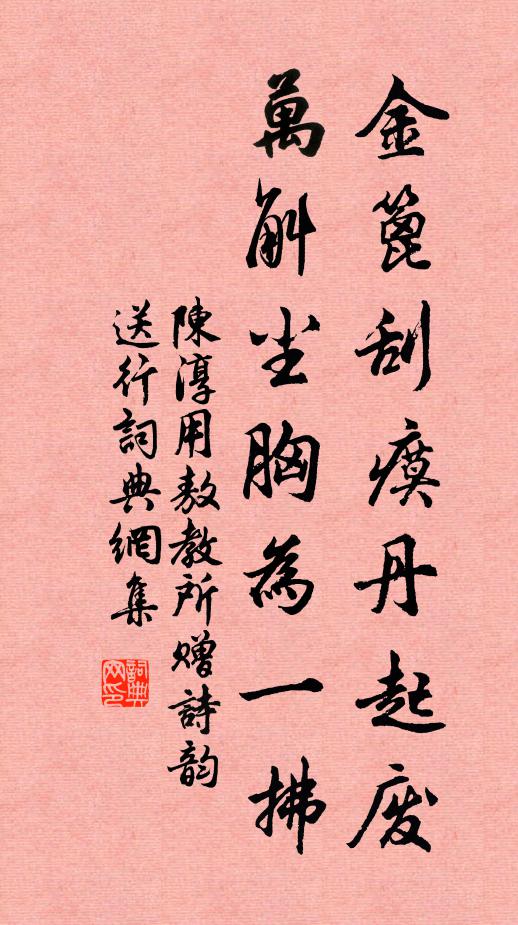 金篦刮瘼丹起废
萬斛尘胸為一拂
陳淳用敖教所赠詩韵
送行詞典網集
詞典网印